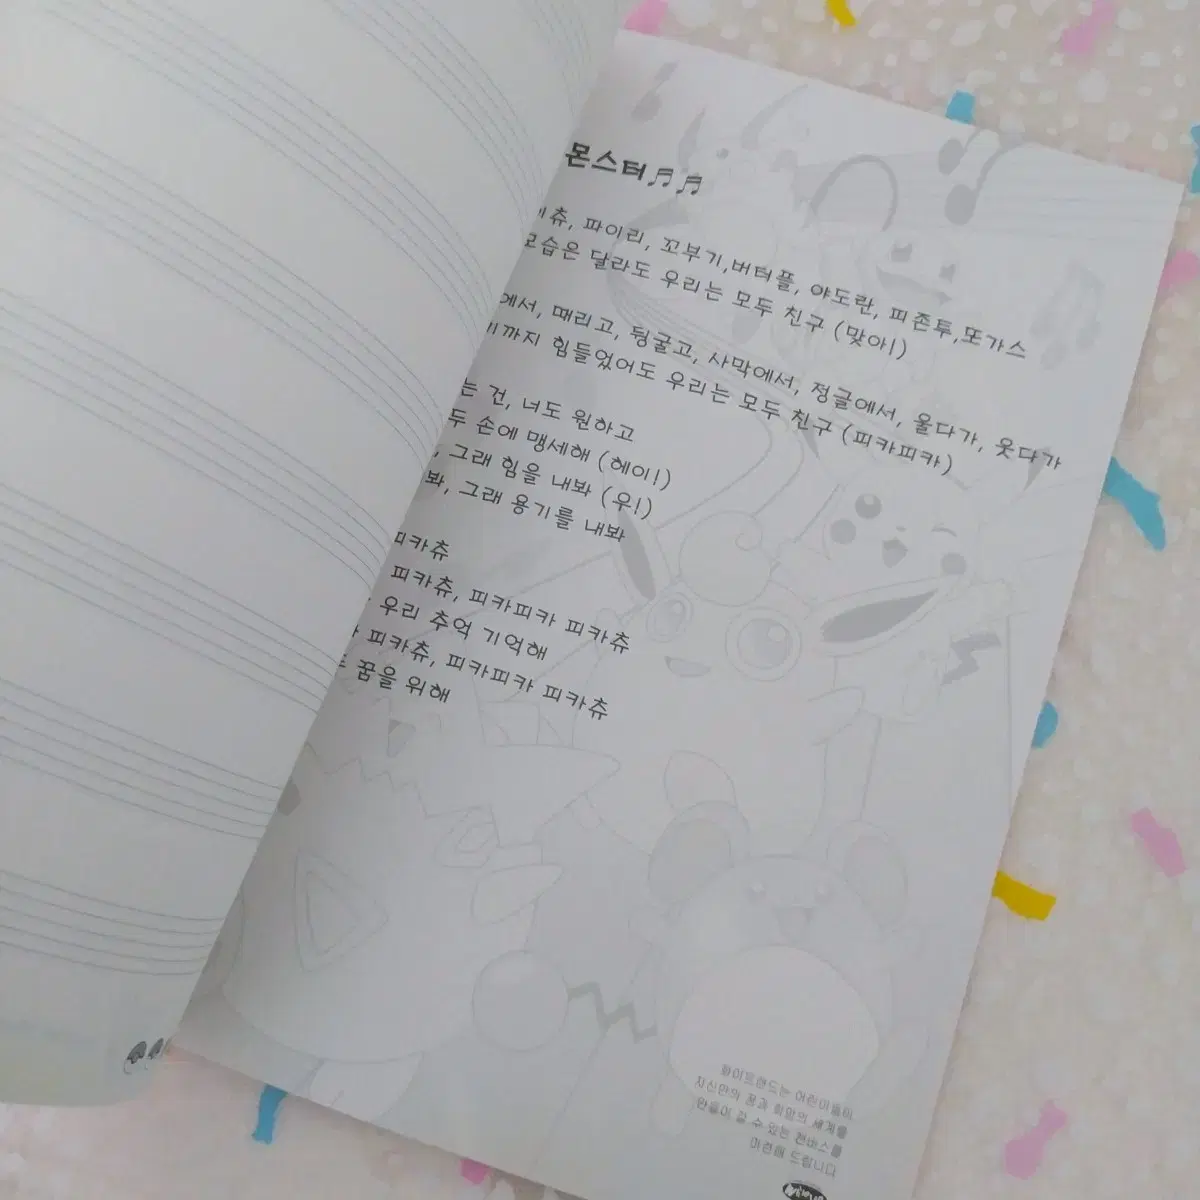 몬스터♬♬
츄, 파이리, 꼬부기,버터플, 야도란, 피존투,또가스
모습은 달라도 우리는 모두 친구 (맞아!)
에서, 때리고, 뒹굴고, 사막에서, 정글에서, 울다가, 웃다가
까지 힘들었어도 우리는 모두 친구 (피카피카)
는 건, 너도 원하고
두 손에 맹세해 (헤이!)
, 그래 힘을 내봐 (우!)
봐, 그래 용기를 내봐
피카츄
피카츄, 피카피카 피카츄
우리 추억 기억해
피카츄, 피카피카 피카츄
꿈을 위해
어린이들이
자신만의 꿈과 희망의 세계를
만들어 갈 수 있는 캔버스를
마련해 드립니다